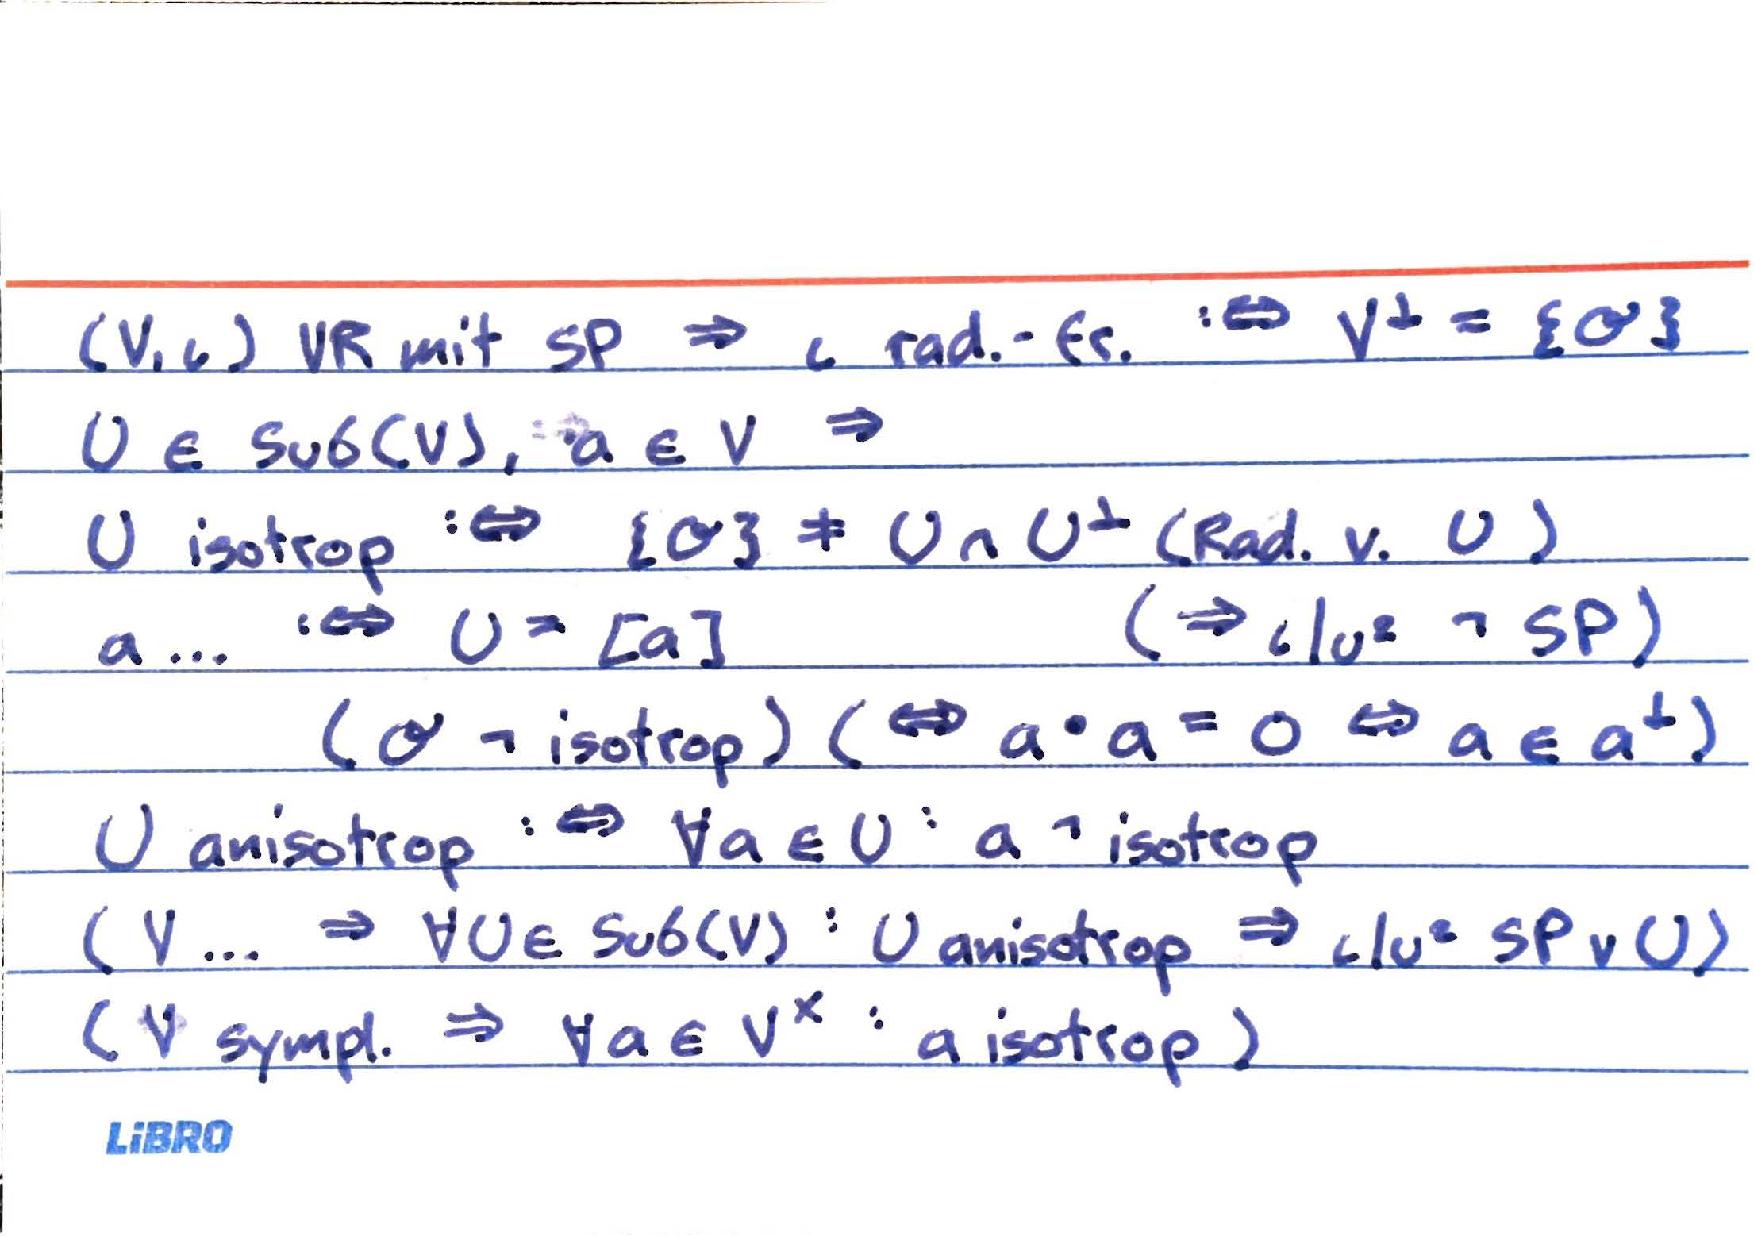 (V, ι) VR mit SP ⇒ ι rad.-fr. :⇔ V⊥ = {σ}
U ∈ Sub(V), a ∈ V ⇒
U isotrop :⇔ {σ} ≠ U ∩ U⊥ (Rad. v. U)
a ... :⇔ U = [a] (⇒ ι|U² ¬ SP)
(σ ¬ isotrop) (⇔ a • a = 0 ⇔ a ∈ a⊥)
U anisotrop :⇔ ∀a ∈ U : a ¬ isotrop
(V ... ⇒ ∀U ∈ Sub(V) : U anisotrop ⇒ ι|U² SP v U)
(V sympl. ⇒ ∀a ∈ V^x : a isotrop)
LiBRO